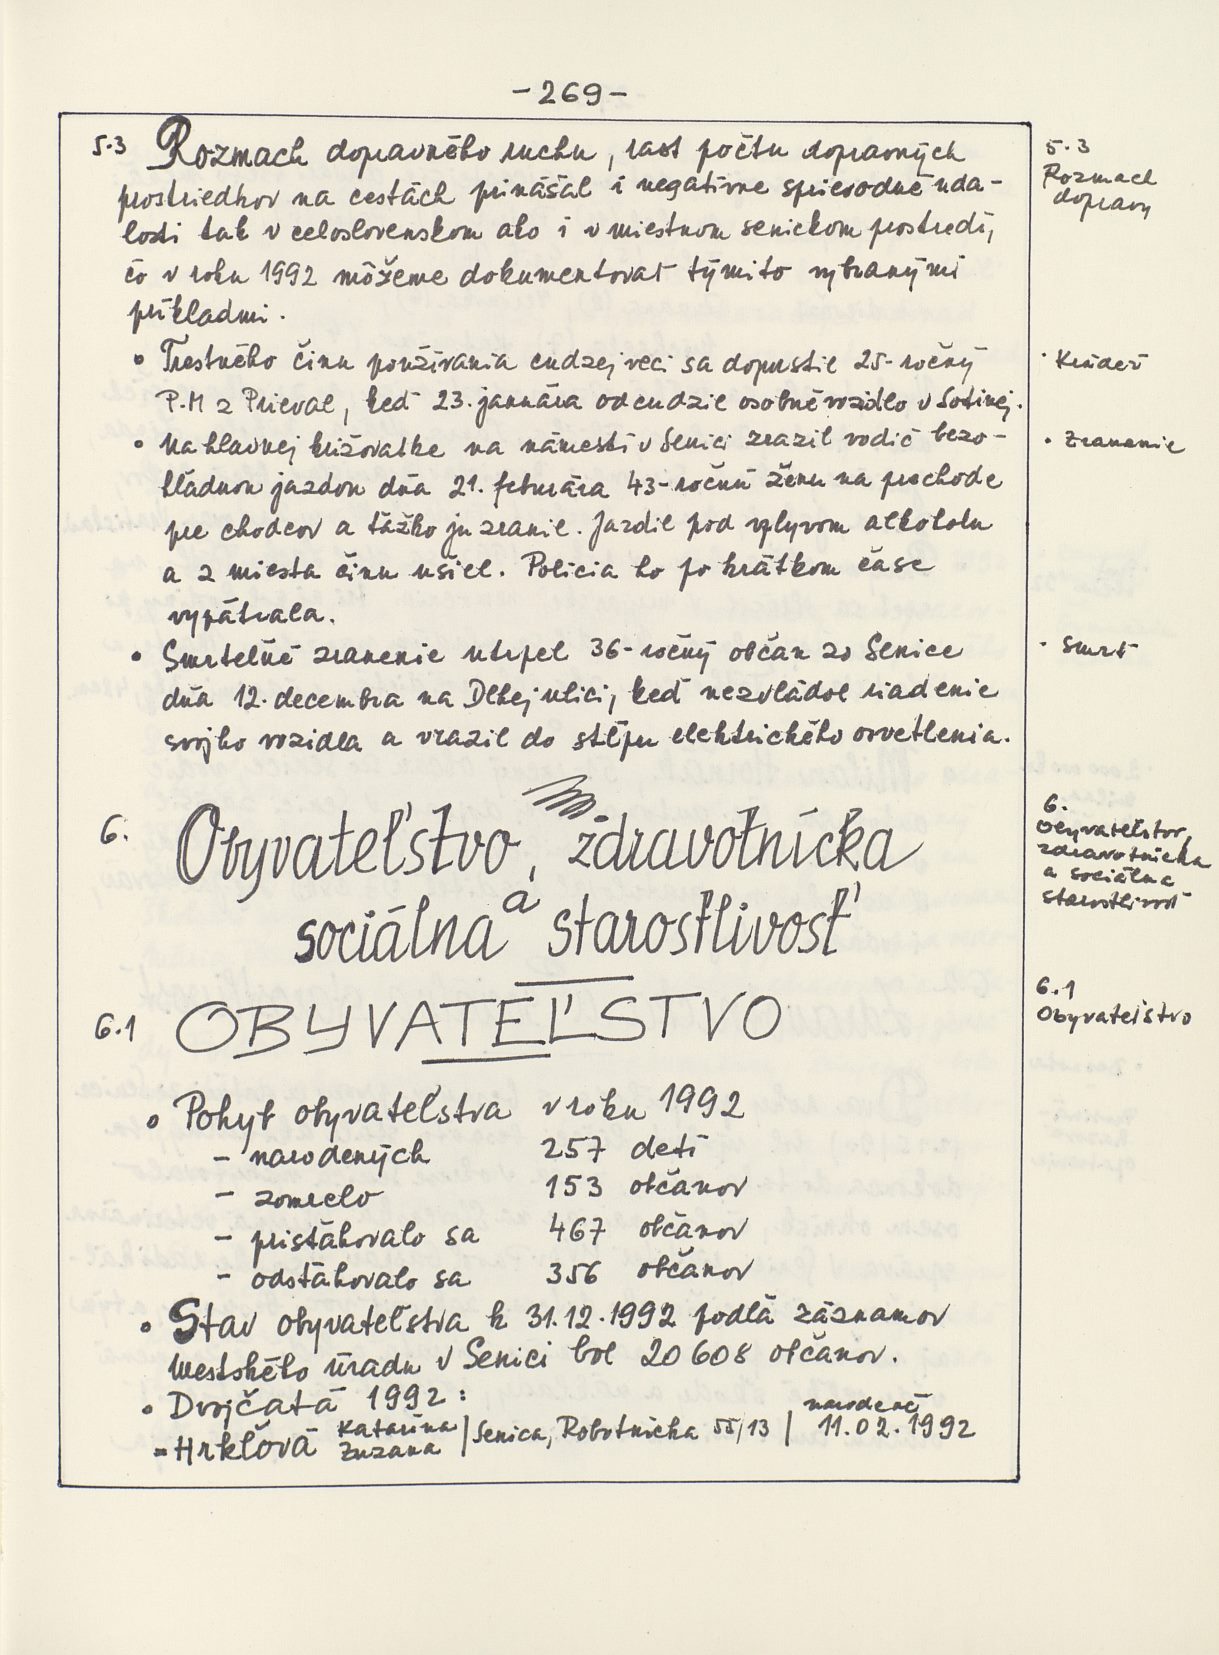 -269-
5.3 Rozmach dopravného ruchu, rast počtu dopravných
prostriedkov na cestách prinášal i negatívne sprievodné uda-
losti tak v celoslovenskom ako i v miestnom senickom prostredí,
čo v roku 1992 môžeme dokumentovať týmito vybranými
príkladmi.
• Trestného činu používania cudzej veci sa dopustil 25-ročný
P.M z Prieval, keď 23. januára odcudzil osobné vozidlo v Sotinej.
• Na hlavnej križovatke na námestí v Senici zrazil vodič bezo-
hľadnou jazdou dňa 21. februára 43-ročnú ženu na prechode
pre chodcov a ťažko ju zranil. Jazdil pod vplyvom alkoholu
a z miesta činu ušiel. Polícia ho po krátkom čase
vypátrala.
• Smrteľné zranenie utrpel 36-ročný občan zo Senice
dňa 12. decembra na Dlhej ulici, keď nezvládol riadenie
svojho vozidla a vrazil do stĺpu elektrického osvetlenia.
6. Obyvateľstvo, zdravotnícka
a
sociálna starostlivosť
6.1 OBYVATEĽSTVO
• Pohyb obyvateľstva v roku 1992
- narodených 257 detí
- zomrelo 153 občanov
- prisťahovalo sa 467 občanov
- odsťahovalo sa 356 občanov
• Stav obyvateľstva k 31.12.1992 podľa záznamov
Mestského úradu v Senici bol 20 608 občanov.
• Dvojčatá 1992:
narodené
- Hrkľová Katarína Zuzana | Senica, Robotnícka 55/13 | 11.02.1992
5.3
Rozmach
dopravy
· Krádež
· Zranenie
· Smrť
6.
Obyvateľstvo,
zdravotnícka
a sociálna
starostlivosť
6.1
Obyvateľstvo